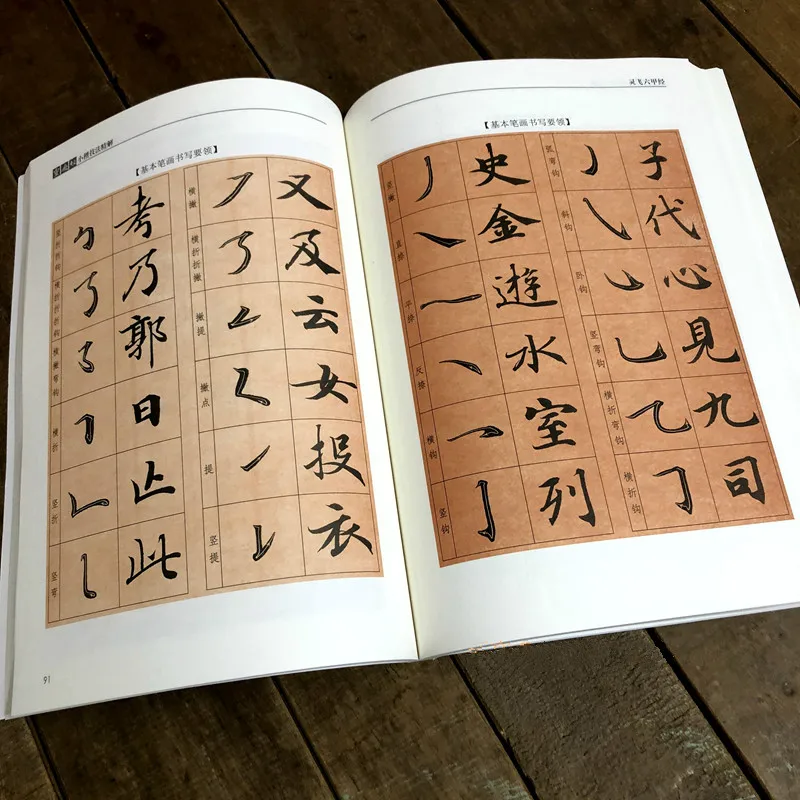 小楷技法精解
【基本笔画书写要领】
竖折折钩 考 横撇 又
横折折折钩 乃 横折折撇 及
横撇弯钩 郭 撇提 云
横折 日 撇点 女
竖折 止 提 投
竖弯 此 竖提 衣
91
灵飞六甲经
【基本笔画书写要领】
竖撇 史 竖弯钩 子
直捺 金 斜钩 代
平捺 遊 卧钩 心
反捺 水 竖弯钩 見
横钩 室 横折弯钩 九
竖钩 列 横折钩 司